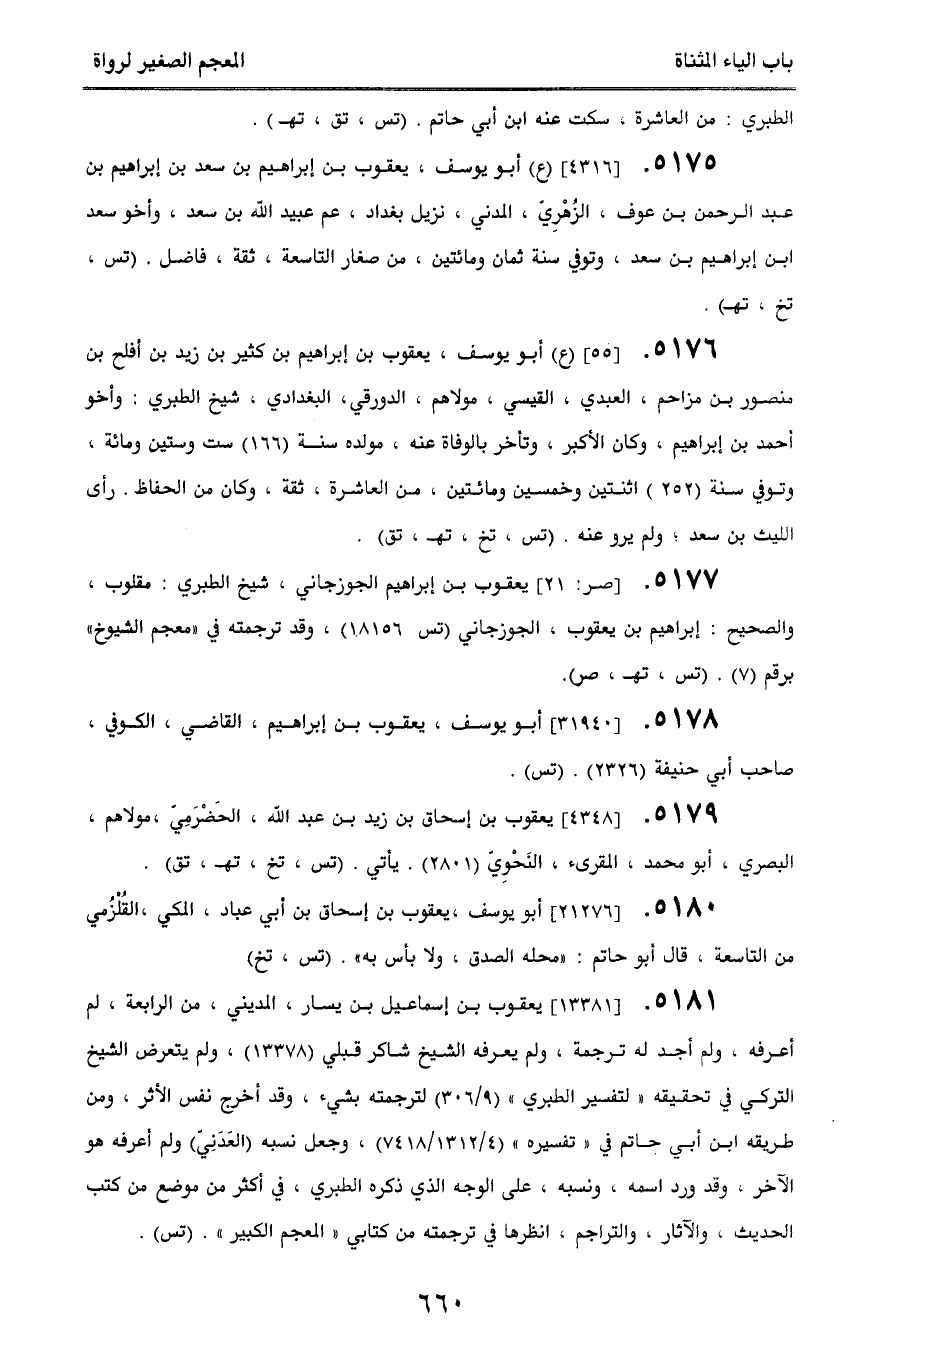 باب الياء المثناة
المعجم الصغير لرواة
الطبري : من العاشرة ، سكت عنه ابن أبي حاتم . (تس ، تق ، تهـ) .
٥١٧٥. [٤٣١٦] (ع) أبو يوسف ، يعقوب بن إبراهيم بن سعد بن إبراهيم بن
عبد الرحمن بن عوف ، الزُهْرِيّ ، المدني ، نزيل بغداد ، عم عبيد الله بن سعد ، وأخو سعد
ابن إبراهيم بن سعد ، وتوفي سنة ثمان ومائتين ، من صغار التاسعة ، ثقة ، فاضل . (تس ،
تخ ، تهـ) .
٥١٧٦. [٥٥] (ع) أبو يوسف ، يعقوب بن إبراهيم بن كثير بن زيد بن أفلح بن
منصور بن مزاحم ، العبدي ، القيسي ، مولاهم ، الدورقي، البغدادي ، شيخ الطبري : وأخو
أحمد بن إبراهيم ، وكان الأكبر ، وتأخر بالوفاة عنه ، مولده سنة (١٦٦) ست وستين ومائة ،
وتوفي سنة (٢٥٢ ) اثنتين وخمسين ومائتين ، من العاشرة ، ثقة ، وكان من الحفاظ . رأى
الليث بن سعد ؛ ولم يرو عنه . (تس ، تخ ، تهـ ، تق) .
٥١٧٧. [صر: ٢١] يعقوب بن إبراهيم الجوزجاني ، شيخ الطبري : مقلوب ،
والصحيح : إبراهيم بن يعقوب ، الجوزجاني (تس ١٨١٥٦) ، وقد ترجمته في «معجم الشيوخ»
برقم (٧) . (تس ، تهـ ، صر).
٥١٧٨. [٣١٩٤٠] أبو يوسف ، يعقوب بن إبراهيم ، القاضي ، الكوفي ،
صاحب أبي حنيفة (٢٣٢٦) . (تس) .
٥١٧٩. [٤٣٤٨] يعقوب بن إسحاق بن زيد بن عبد الله ، الحَضْرَمِيّ ،مولاهم ،
البصري ، أبو محمد ، المقرىء ، النَحْوِيّ (٢٨٠١) . يأتي . (تس ، تخ ، تهـ ، تق) .
٥١٨٠. [٢١٢٧٦] أبو يوسف ،يعقوب بن إسحاق بن أبي عباد ، المكي ،القُلْزُمي
من التاسعة ، قال أبو حاتم : «محله الصدق ، ولا بأس به» . (تس ، تخ)
٥١٨١. [١٣٣٨١] يعقوب بن إسماعيل بن يسار ، المديني ، من الرابعة ، لم
أعرفه ، ولم أجد له ترجمة ، ولم يعرفه الشيخ شاكر قبلي (١٣٣٧٨) ، ولم يتعرض الشيخ
التركي في تحقيقه « لتفسير الطبري » (٣٠٦/٩) لترجمته بشيء ، وقد أخرج نفس الأثر ، ومن
طريقه ابن أبي حاتم في « تفسيره » (٧٤١٨/١٣١٢/٤) ، وجعل نسبه (العَدَنِيّ) ولم أعرفه هو
الآخر ، وقد ورد اسمه ، ونسبه ، على الوجه الذي ذكره الطبري ، في أكثر من موضع من كتب
الحديث ، والآثار ، والتراجم ، انظرها في ترجمته من كتابي « المعجم الكبير » . (تس) .
٦٦٠